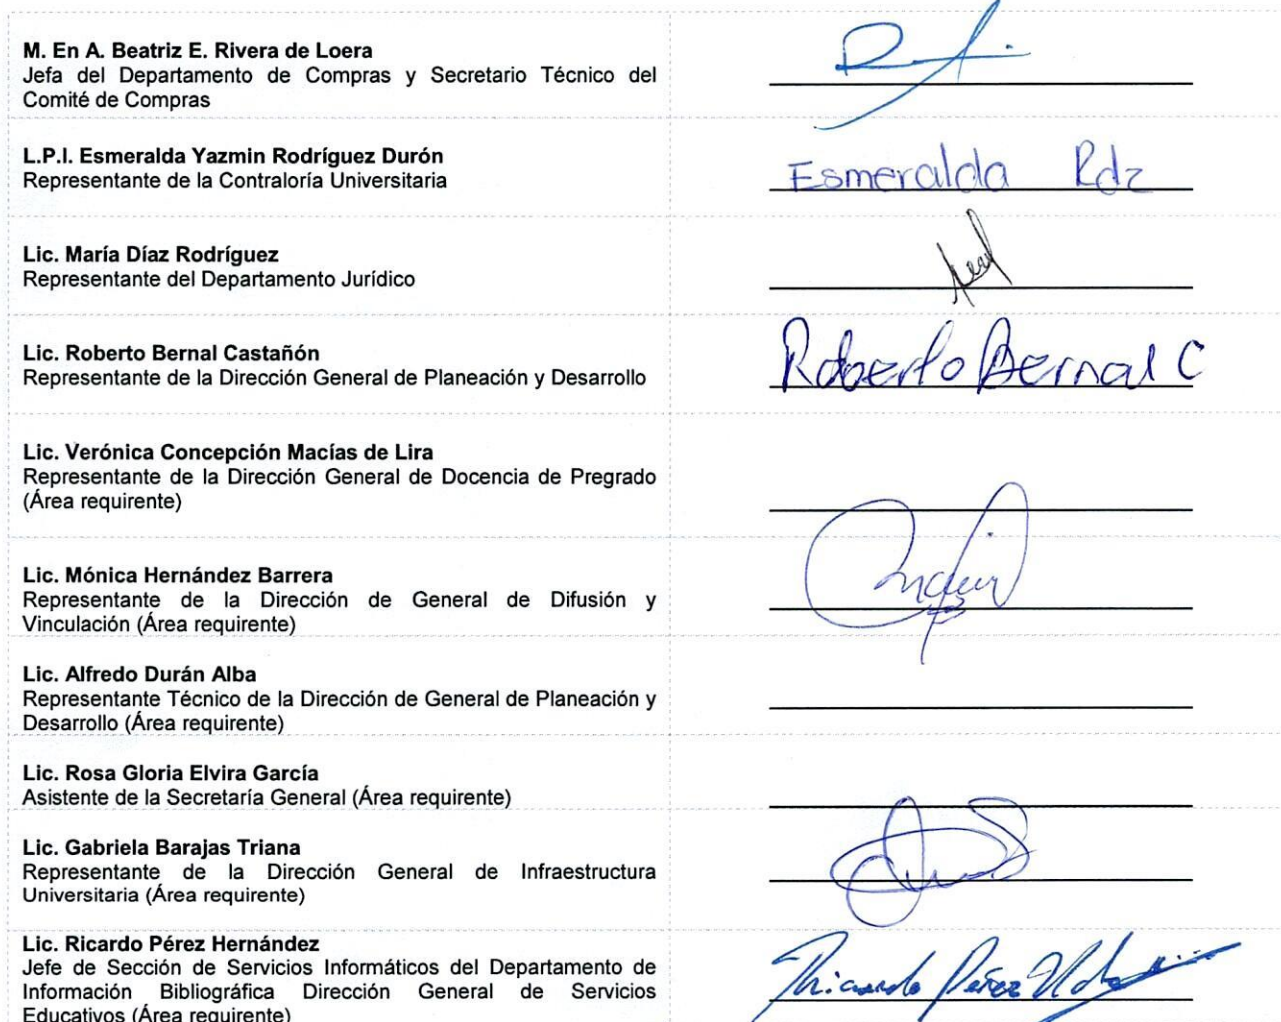 M. En A. Beatriz E. Rivera de Loera
Jefa del Departamento de Compras y Secretario Técnico del
Comité de Compras
L.P.I. Esmeralda Yazmin Rodríguez Durón
Representante de la Contraloría Universitaria
Esmeralda Rdz
Lic. María Díaz Rodríguez
Representante del Departamento Jurídico
Lic. Roberto Bernal Castañón
Representante de la Dirección General de Planeación y Desarrollo
Roberto Bernal C
Lic. Verónica Concepción Macías de Lira
Representante de la Dirección General de Docencia de Pregrado
(Área requirente)
Lic. Mónica Hernández Barrera
Representante de la Dirección de General de Difusión y
Vinculación (Área requirente)
Lic. Alfredo Durán Alba
Representante Técnico de la Dirección de General de Planeación y
Desarrollo (Área requirente)
Lic. Rosa Gloria Elvira García
Asistente de la Secretaría General (Área requirente)
Lic. Gabriela Barajas Triana
Representante de la Dirección General de Infraestructura
Universitaria (Área requirente)
Lic. Ricardo Pérez Hernández
Jefe de Sección de Servicios Informáticos del Departamento de
Información Bibliográfica Dirección General de Servicios
Educativos (Área requirente)
Ricardo Pérez